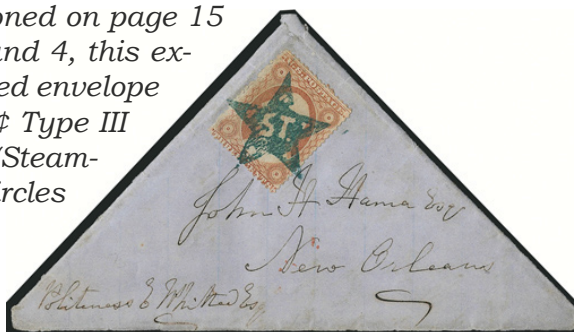 oned on page 15
nd 4, this ex-
ed envelope
¢ Type III
Steam-
rcles
ST.
John H Hama Esq
New Orleans
Politeness E Whitted Esq